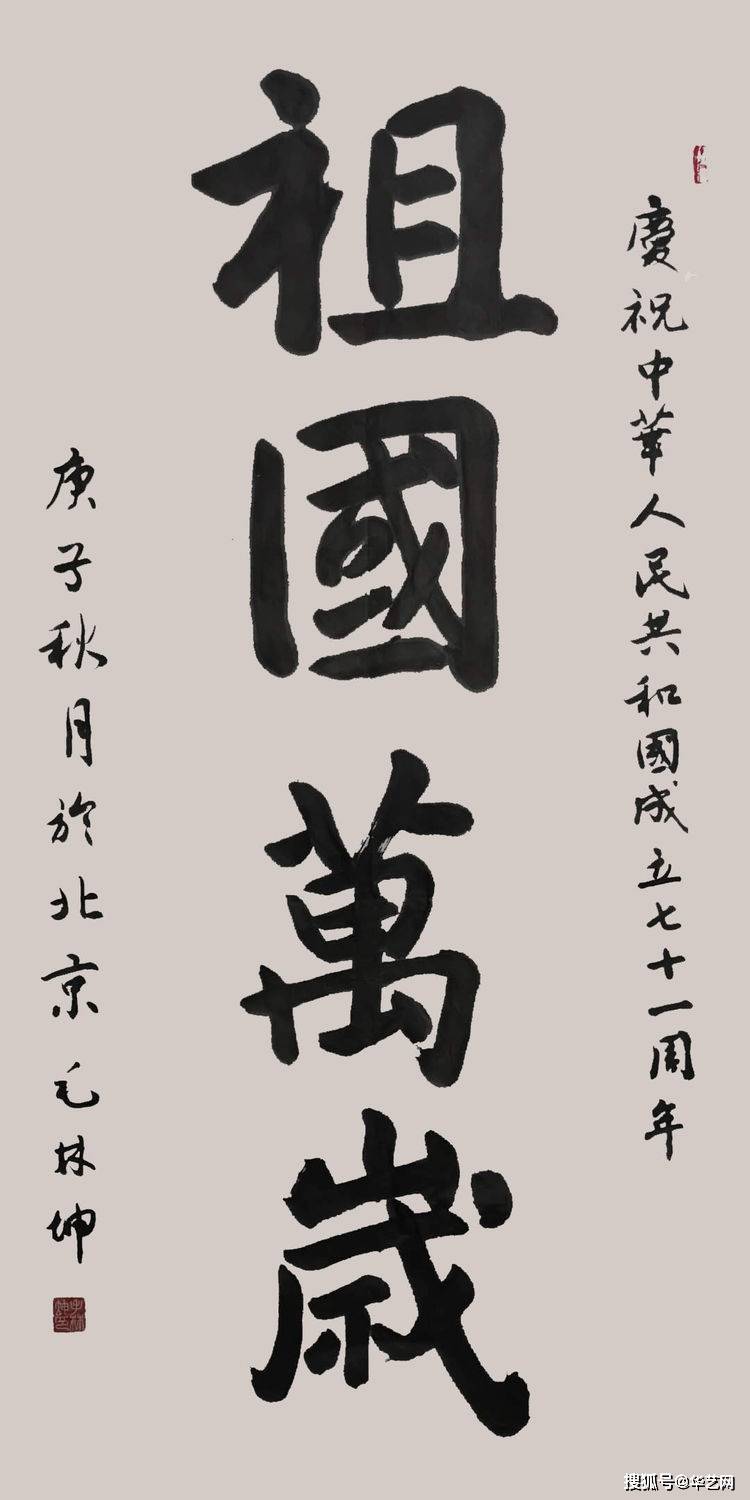 慶祝中華人民共和國成立七十一周年
祖國萬歲
庚子秋月於北京毛林坤
搜狐号@华艺网